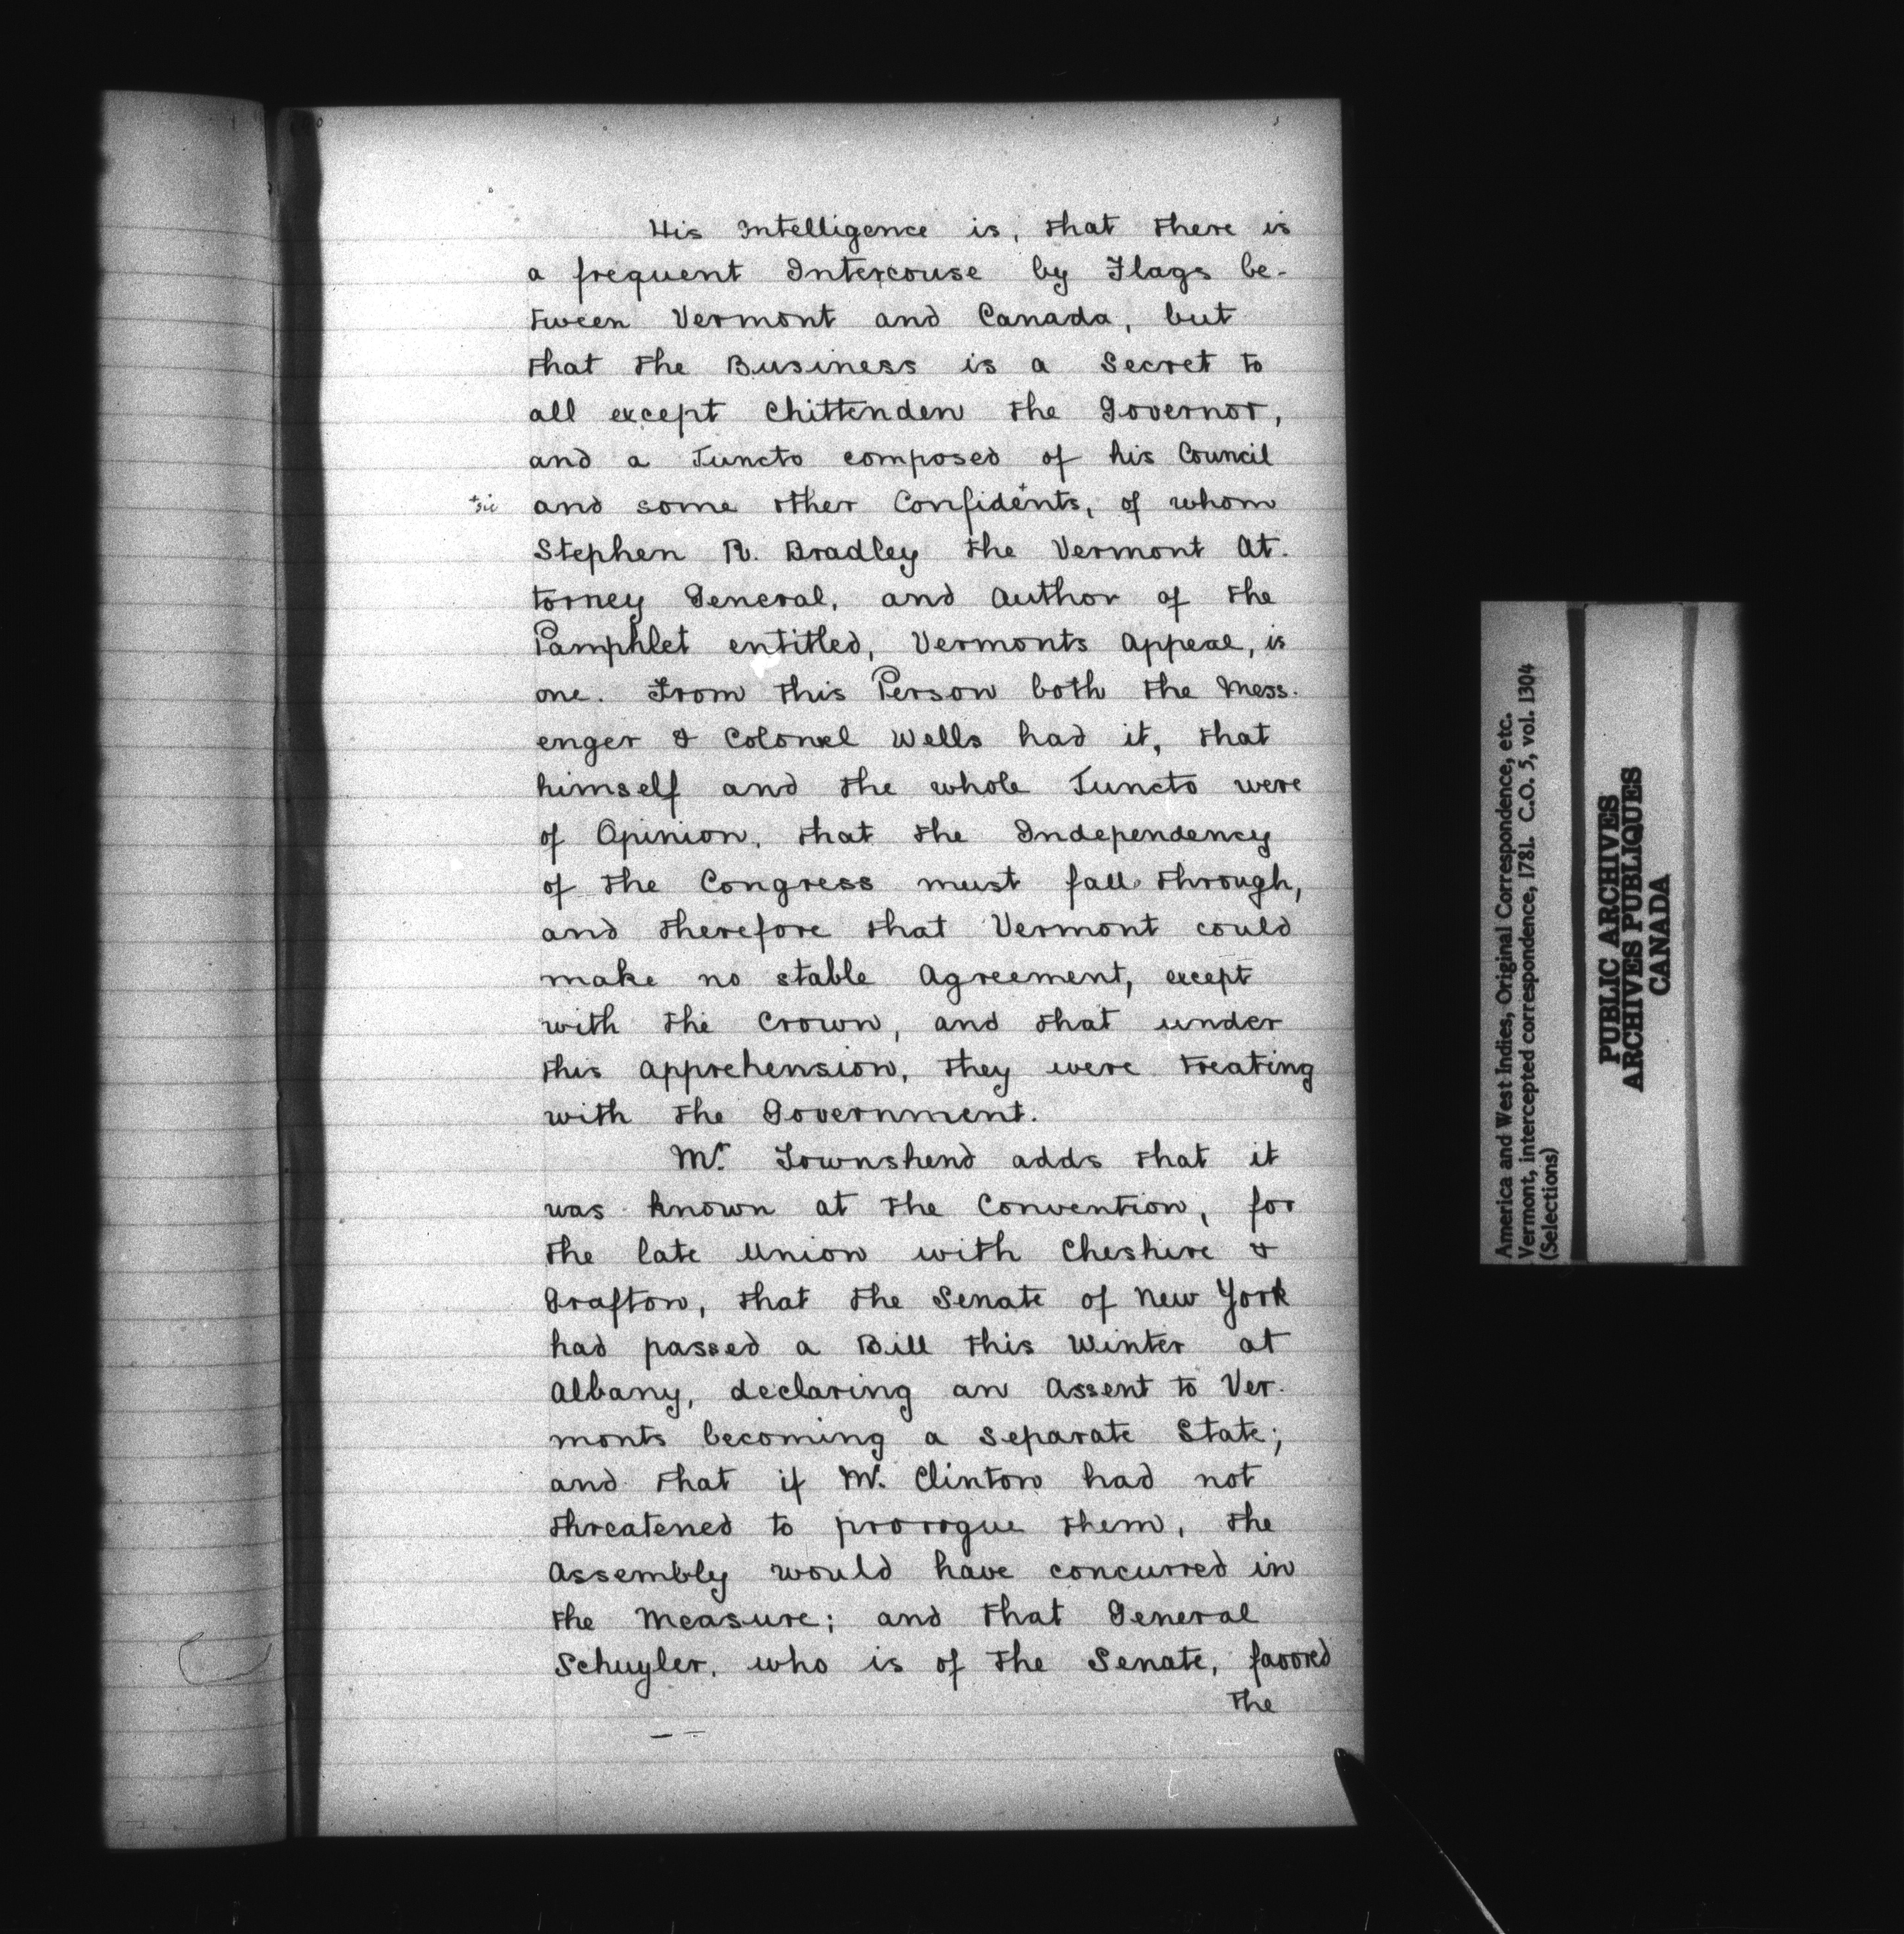 His Intelligence is, that there is
a frequent Intercouse by Flags be-
tween Vermont and Canada, but
that the Business is a Secret to
all except Chittenden the Governor,
and a Juncto composed of his Council
+sic and some other Confidents,+ of whom
Stephen R. Bradley the Vermont At-
torney General, and Author of the
Pamphlet entitled, Vermonts Appeal, is
one. From this Person both the Mess-
enger & Colonel Wells had it, that
himself and the whole Juncto were
of Opinion, that the Independency
of the Congress must fall through,
and therefore that Vermont could
make no stable Agreement, except
with the Crown, and that under
this Apprehension, they were treating
with the Government.
Mr. Townshend adds that it
was known at the Convention, for
the late Union with Cheshire &
Grafton, that the Senate of New York
had passed a Bill this Winter at
Albany, declaring an Assent to Ver-
monts becoming a separate State;
and that if Mr. Clinton had not
threatened to prorogue them, the
Assembly would have concurred in
the Measure; and that General
Schuyler, who is of the Senate, favored
the
America and West Indies, Original Correspondence, etc.
Vermont, intercepted correspondence, 1781. C.O. 5, vol. 1304
(Selections)
PUBLIC ARCHIVES
ARCHIVES PUBLIQUES
CANADA